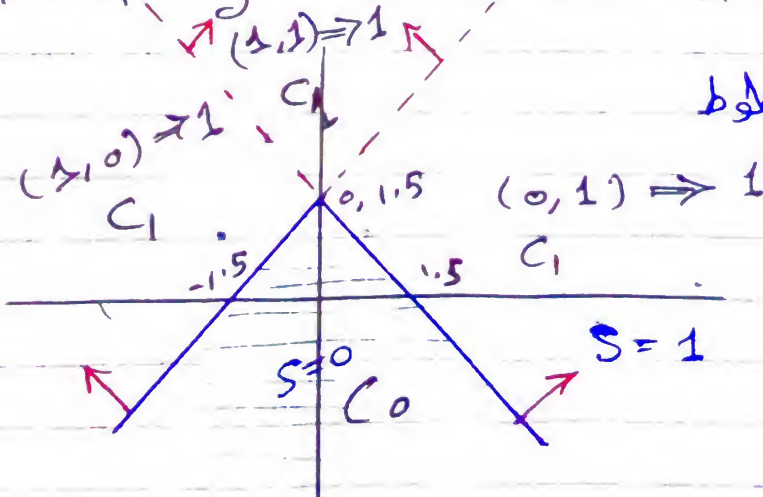 (1,1) => 1
C1
(1,0) => 1
C1
0, 1.5
(0,1) => 1
C1
-1.5
1.5
S=0
S = 1
C0